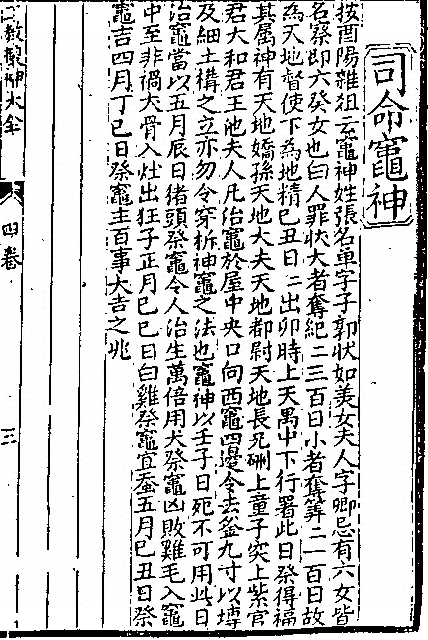 司命竈神
按酉陽雜俎云竈神姓張名单字子郭状如美女夫人字卿忌有六女皆
名察即六癸女也白人罪状大者奪紀二三百日小者奪筭二一百日故
為天地督使下為地精巳丑日日出卯時上天禺中下行署此日祭得福
其属神有天地嬌孫天地大夫天地都尉天地長兄硎上童子突上紫官
君大和君王池夫人凡治竈於屋中央口向西竈四邊令去釜九寸以塼
及細土構之立亦勿令穿拆神竈之法也竈神以壬子日死不可用此日
治竈當以五月辰日猪頭祭竈令人治生萬倍用犬祭竈凶敗雞毛入竈
中至非禍犬骨入灶出狂子正月巳巳日白雞祭竈宜蚕五月巳丑日祭
竈吉四月丁巳日祭竈主百事大吉之兆
三教搜神大全
四卷
三